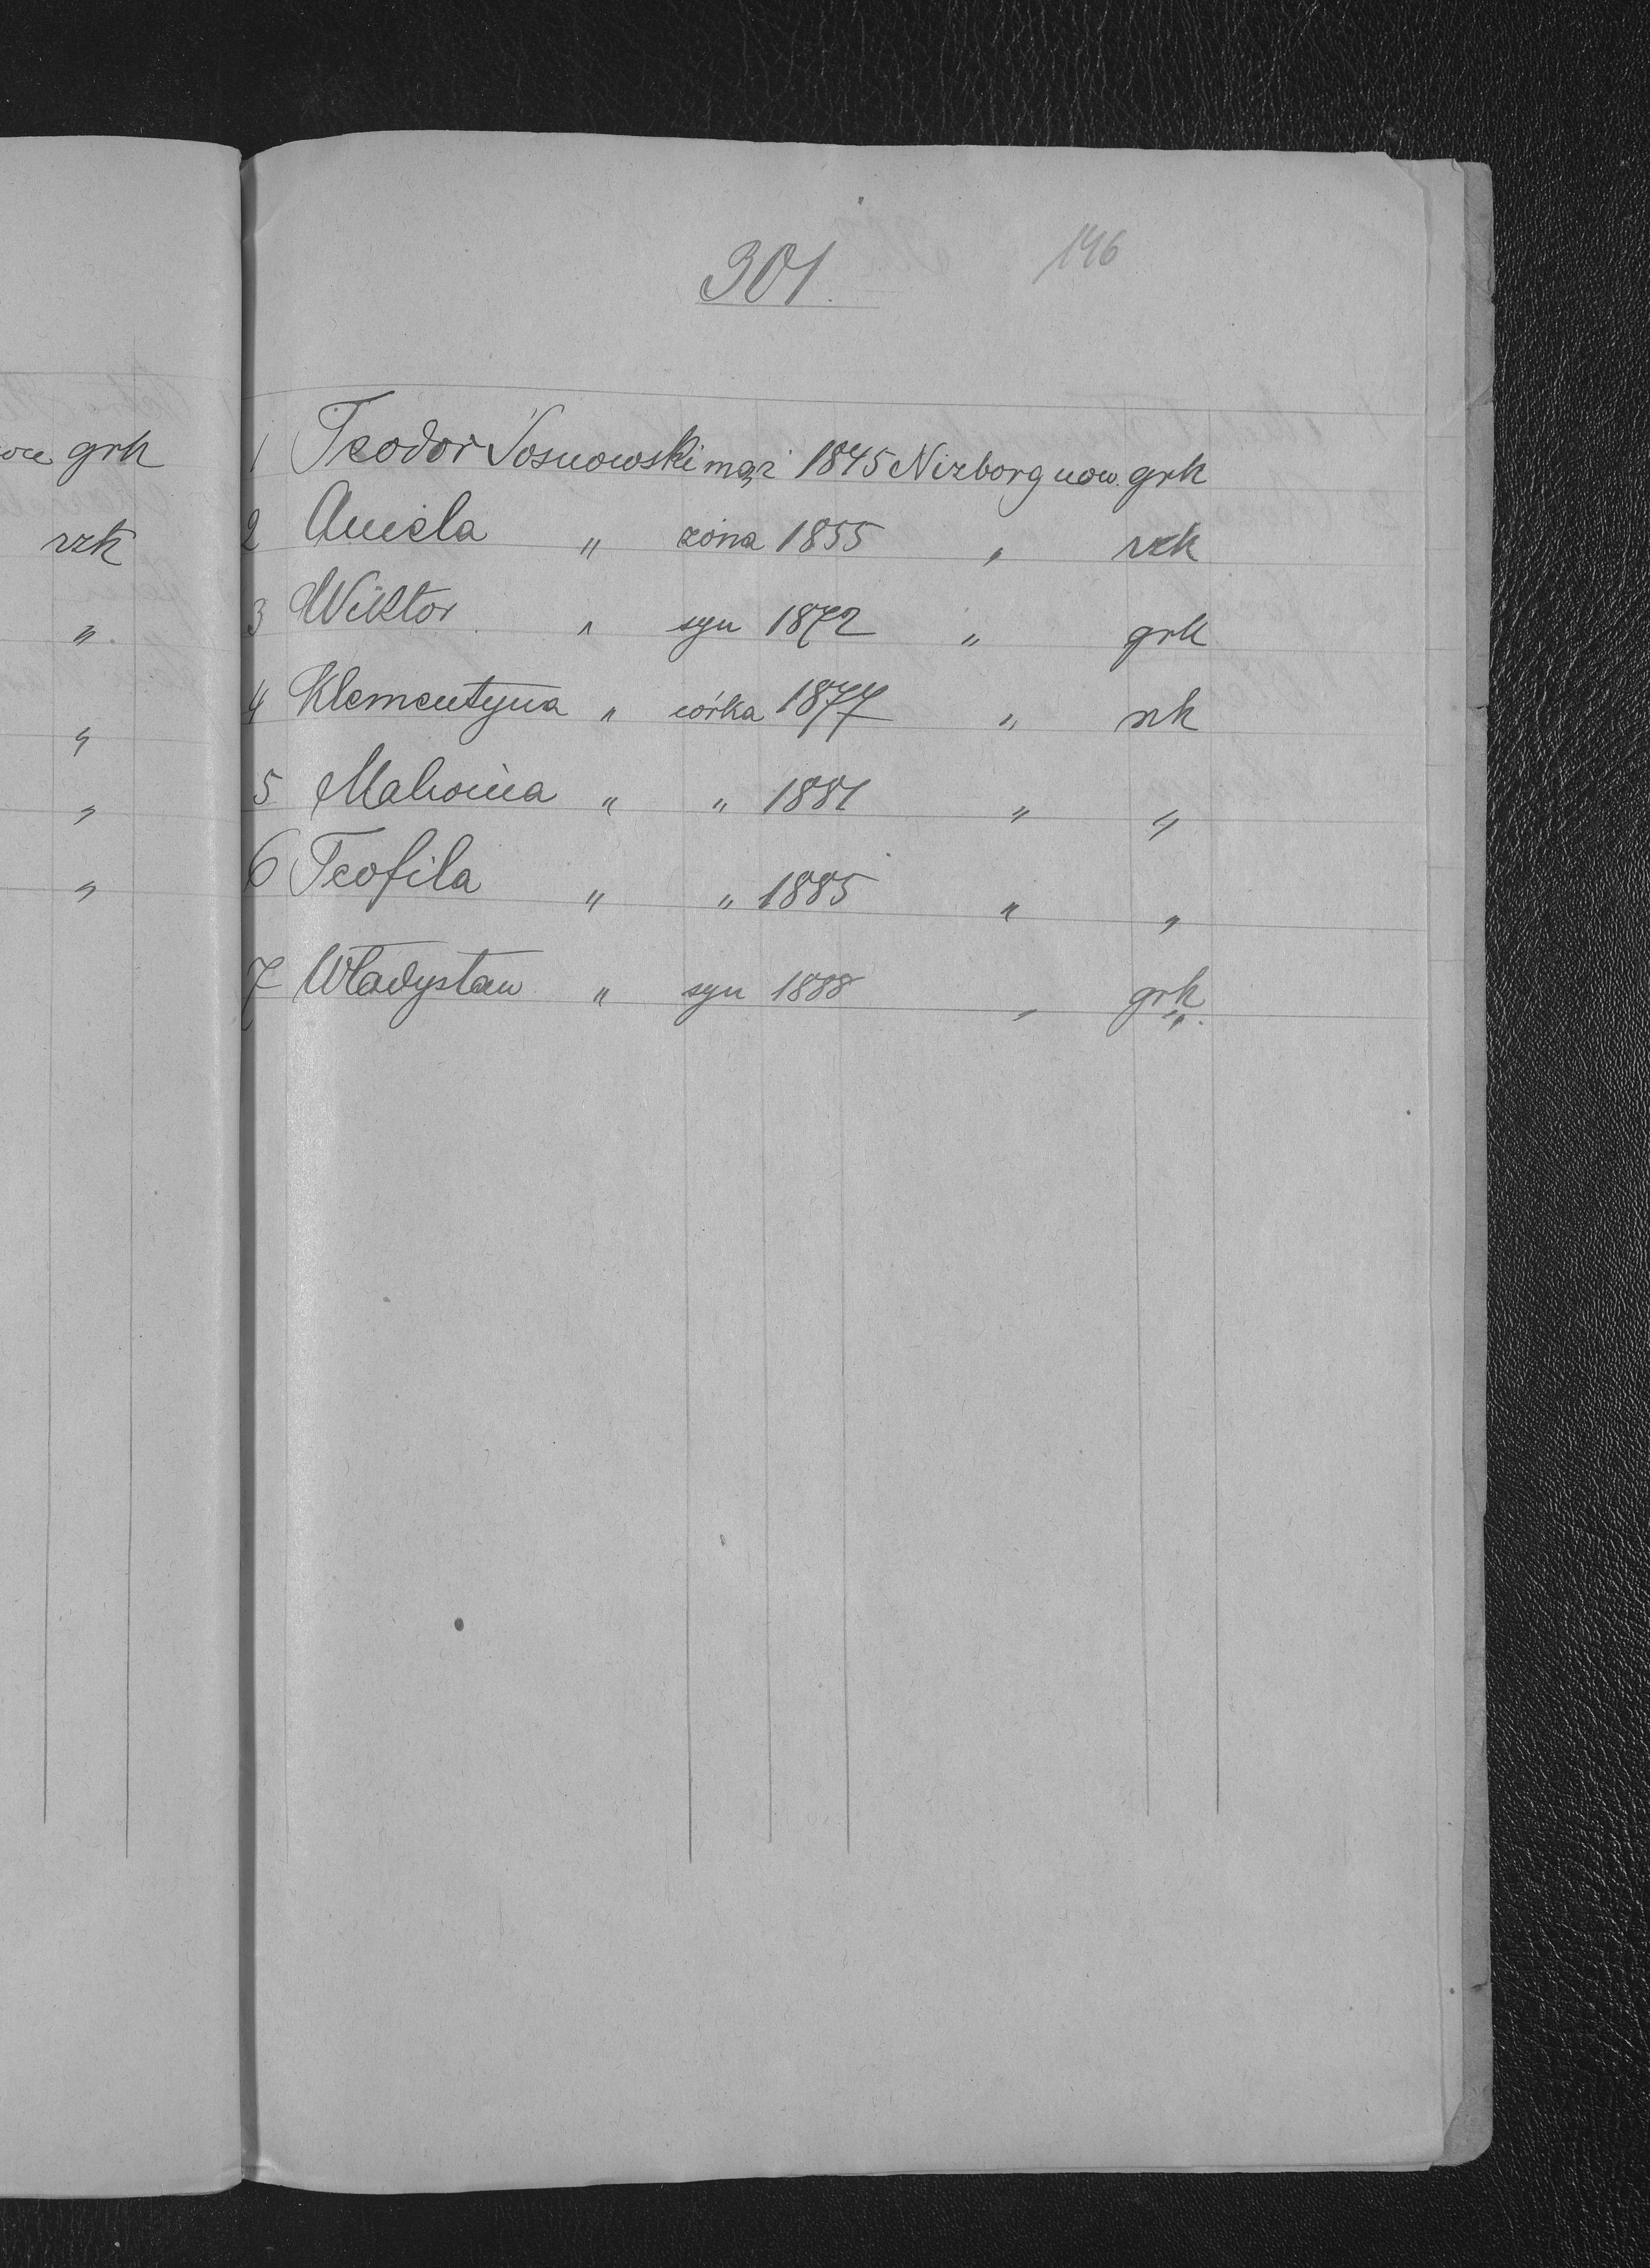 301.
146
1 Teodor Sosnowski mąż 1845 Nizborg now. grk
2 Aniela " żona 1855 " rzk
3 Wiktor " syn 1872 " grk
4 Klementyna " córka 1877 " rzk
5 Malwina " " 1881 " "
6 Teofila " " 1885 " "
7 Władysław " syn 1888 " grk
grk
rzk
"
"
"
"